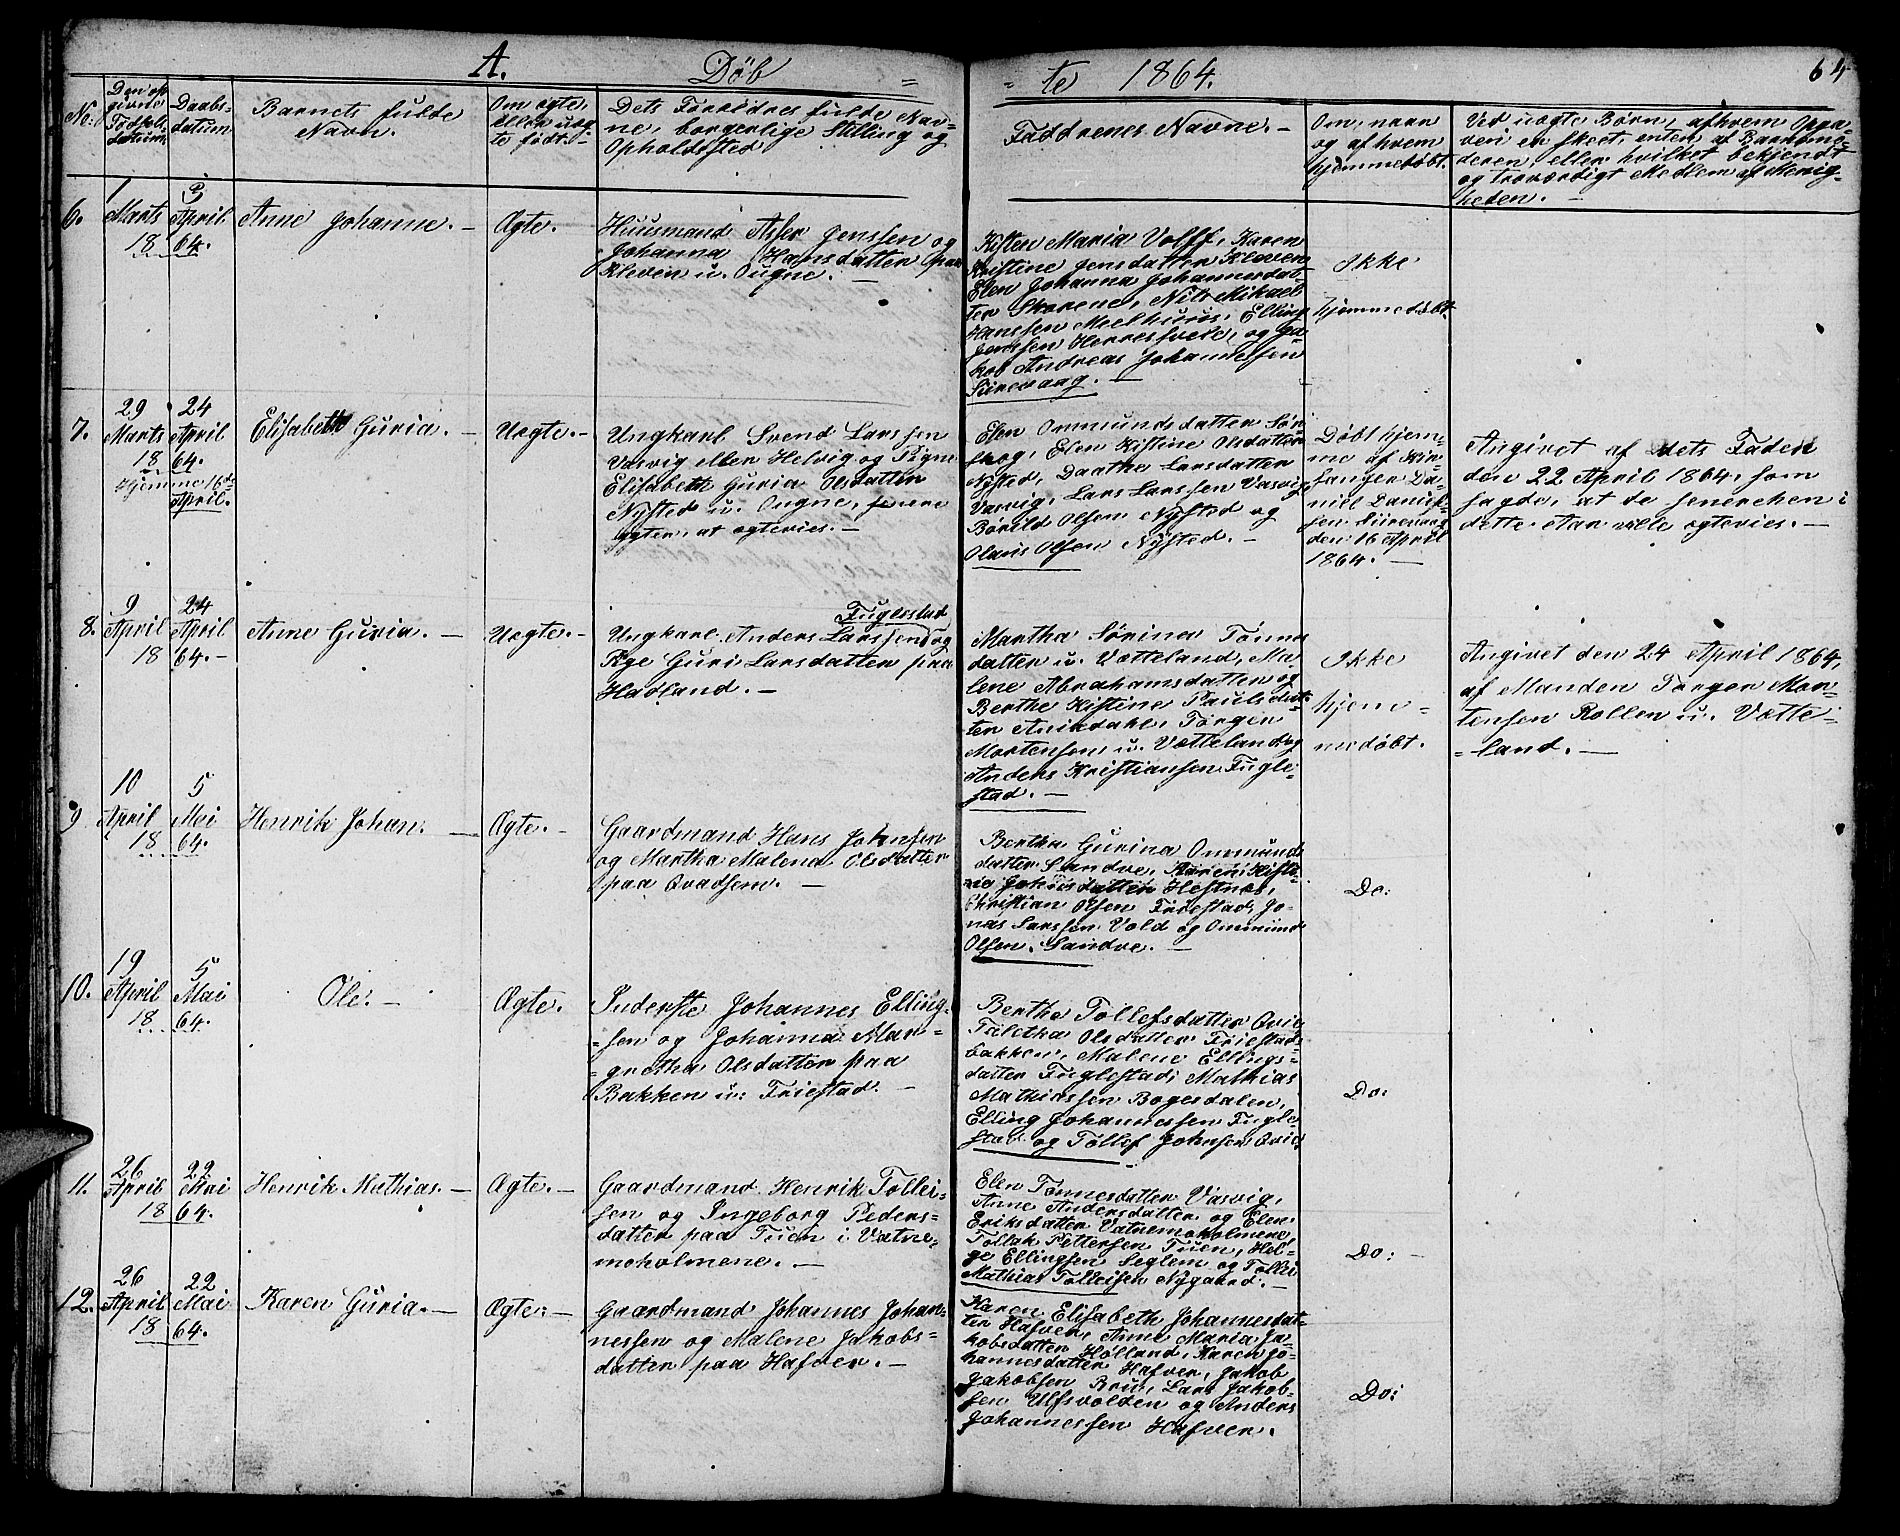 A. Døb = = te 1864. 64
No: Den op givne Fødsels datum. Daabs- datum. Barnets fulde Navn. Om ægte, eller uæg- te født. Dets Forældres fulde Nav- ne, borgerlige Stilling og Opholdssted Faddrenes Navne. Om, naar og af hvem hjemmedøbt. Ved uægte Børn, af hvem Opga- ven er skeet, enten af Barnemo- deren eller hvilket bekjendt og troværdigt Medlem af Menig- heden.
6. 1 Marts 18 3 April 64.
Anne Johanne.
Ægte.
Huusmand Asser Jenssen og
Johanna Hansdatter paa
Kleven u. Ougne.
Kisten Maria Volff, Karen
Kristine Jensdatter Kleven
Elen Johanna Johannesdat-
ter Skorene, Nils Mikael
Hanssen Meelhuus, Elling
Jenssen Herresvele, og Ja-
kob Andreas Johannessen
Sirevaag.
Ikke
hjemmedøbt.
7. 29 Marts 18 24 April 64.
Hjemme 16de April.
Elisabeth Guria.
Uægte.
Ungkarl Svend Larssen
Vasvig eller Helvig og Pigne
Elisabeth Guria Olsdatter
Nysted u. Ougne, senere
agter, at ægtevies.
Elen Ommundsdatter Søn-
skog, Elen Kistine Olsdatter
Nysted, Daathe Larsdatter
Vasvig, Lars Larssen Vasvig
Borild Olsen Nysted og
Olaus Olsen Nysted.
Døbt hjem-
me af Kir-
sanger Da-
niel Daniel-
sen Sirevaag
den 16 April
1864.
Angivet af dets Fader
den 22 April 1864, som
sagde, at de senerehen i
dette Aar ville ægtevies.
8. 9 April 18 24 April 64.
Anne Guria.
Uægte.
Fuglestad
Ungkarl Anders Larssen og
Pge Guri Larsdatter paa
Hadland.
Martha Sørine Tønnes
datter u. Vætteland, Ma-
lene Abrahamsdatter og
Berthe Kistine Paulsdat-
ter Aniksdahl, Torger
Mortensen u. Vætteland og
Anders Kristiansen Fugle-
stad.
Ikke
hjem-
medøbt.
Angivet den 24 April 1864,
af Manden Torger Mor-
tensen Rollen u. Vætte-
land.
9. 10 April 18 5 Mai 64.
Henrik Johan.
Ægte.
Gaardmand Hans Johnsen
og Martha Malena Olsdatter
paa Qvadsem.
Bertha Gurina Ommunds
datter Sandve, Karen Kisti-
ne Johnsdatter Hestnes,
Christian Olsen Friestad, Jo-
nas Larssen Vold og Ommund
Olsen Sandve.
Do:
10. 19 April 18 5 Mai 64.
Ole.
Ægte.
Inderste Johannes Elling-
sen og Johanna Mar-
gretha Olsdatter paa
Bakken u: Friestad.
Berthe Tollefsdatter Qvie
Taletha Olsdatter Friestad-
bakken, Malene Ellings-
datter Fuglestad, Mathias
Mathiassen Bogesdalen,
Elling Johannessen Fugle-
stad og Tollef Johnsen Qvie
Do:
11. 26 April 18 22 Mai 64.
Henrik Mathias.
Ægte.
Gaardmand Henrik Tollei-
sen og Ingeborg Peders-
datter paa Tuen i Vatne-
moholmene.
Elen Tønnesdatter Vasvig,
Anne Andersdatter og Elen
Eriksdatter Vatnemoholmene,
Tollak Pettersen Tuen, Hel-
ge Ellingsen Seglem og Tollei
Mathias Tolleisen Nygaard.
Do:
12. 26 April 18 22 Mai 64.
Karen Guria.
Ægte.
Gaardmand Johannes Johan-
nessen og Malene Jakobs-
datter paa Hafver.
Karen Elisabeth Johannesdat-
ter Hafver, Anne Maria Ja-
kobsdatter Hølland, Karen Jo-
hannesdatter Hafver, Jakob
Jakobsen Bru, Lars Jakob-
sen Ulfsvolden og Anders
Johannessen Hafver.
Do: